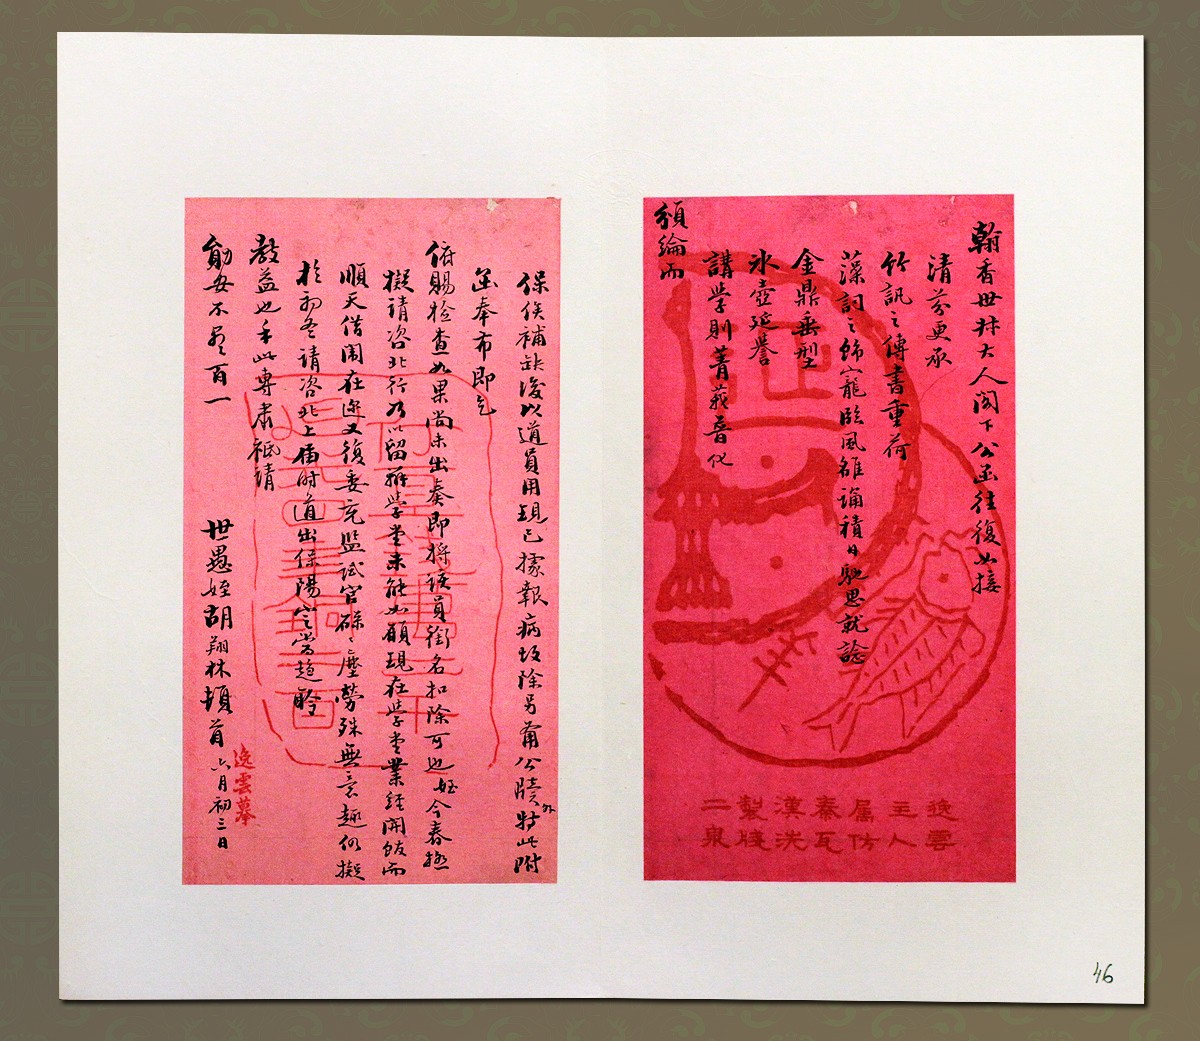 翰香世叔大人閣下公函往復如接
清芬更承
竹訊之傳書重荷
藻詞之飾寵臨風雒誦積日馳思就諗
金鼎垂型
冰壺延譽
講學則菁莪普化
頒綸而
逸雲主人屬仿秦瓦漢洗製牋二泉
保候補缺後以道員用現已據報病故除另備公牘外特此附
函奉布即乞
俯賜檢查如果尚未出奏即將該員銜名扣除可也姪今春極
擬請咨北行乃以留辦學堂未能如願現在學堂業經開館而
順天借闈在邇又復委充監試官碌碌塵勞殊無意趣仍擬
於初冬請咨北上屆時道出保陽定當趨聆
教益也手此專肅祗請
勛安不盡百一
世愚姪胡翔林頓首六月初三日
逸雲摹
46